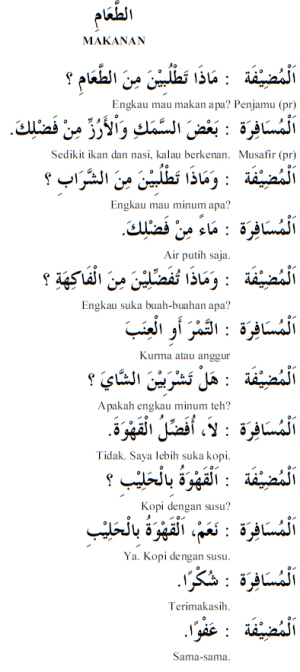 الطَّعَامِ
MAKANAN
اَلْمُضِيْفَة : مَاذَا تَطْلُبِيْنَ مِنَ الطَّعَامِ ؟
Engkau mau makan apa? Penjamu (pr)
اَلْمُسَافِرَة : بَعْضَ السَّمَكِ وَاْلأَرُزِّ مِنْ فَضْلِكَ.
Sedikit ikan dan nasi, kalau berkenan. Musafir (pr)
اَلْمُضِيْفَة : وَمَاذَا تَطْلُبِيْنَ مِنَ الشَّرَابِ ؟
Engkau mau minum apa?
اَلْمُسَافِرَة : مَاءً مِنْ فَضْلِكَ.
Air putih saja.
اَلْمُضِيْفَة : وَمَاذَا تُفَضِّلِيْنَ مِنَ الْفَاكِهَةِ ؟
Engkau suka buah-buahan apa?
اَلْمُسَافِرَة : التَّمْرَ أَوِ الْعِنَبَ
Kurma atau anggur
اَلْمُضِيْفَة : هَلْ تَشْرَبِيْنَ الشَّايَ ؟
Apakah engkau minum teh?
اَلْمُسَافِرَة : لاَ، أُفَضِّلُ الْقَهْوَةَ.
Tidak. Saya lebih suka kopi.
اَلْمُضِيْفَة : اَلْقَهْوَةُ بِالْحَلِيْبِ ؟
Kopi dengan susu?
اَلْمُسَافِرَة : نَعَمْ، اَلْقَهْوَةُ بِالْحَلِيْبِ
Ya. Kopi dengan susu.
اَلْمُسَافِرَة : شُكْرًا.
Terimakasih.
اَلْمُضِيْفَة : عَفْوًا.
Sama-sama.